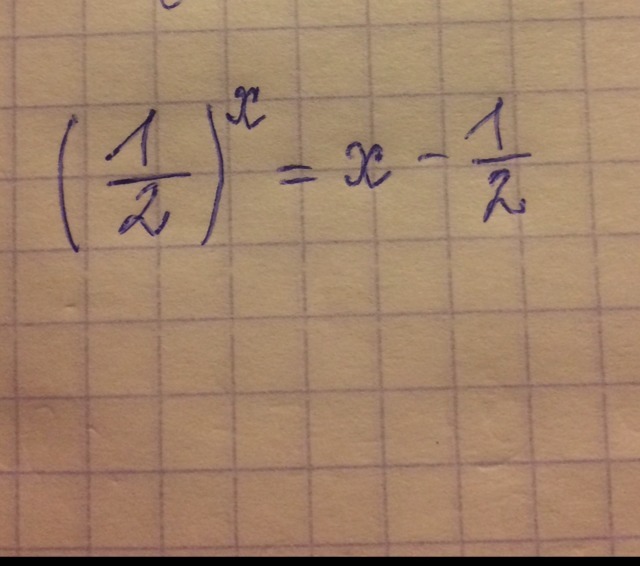 (1/2)^x = x - 1/2